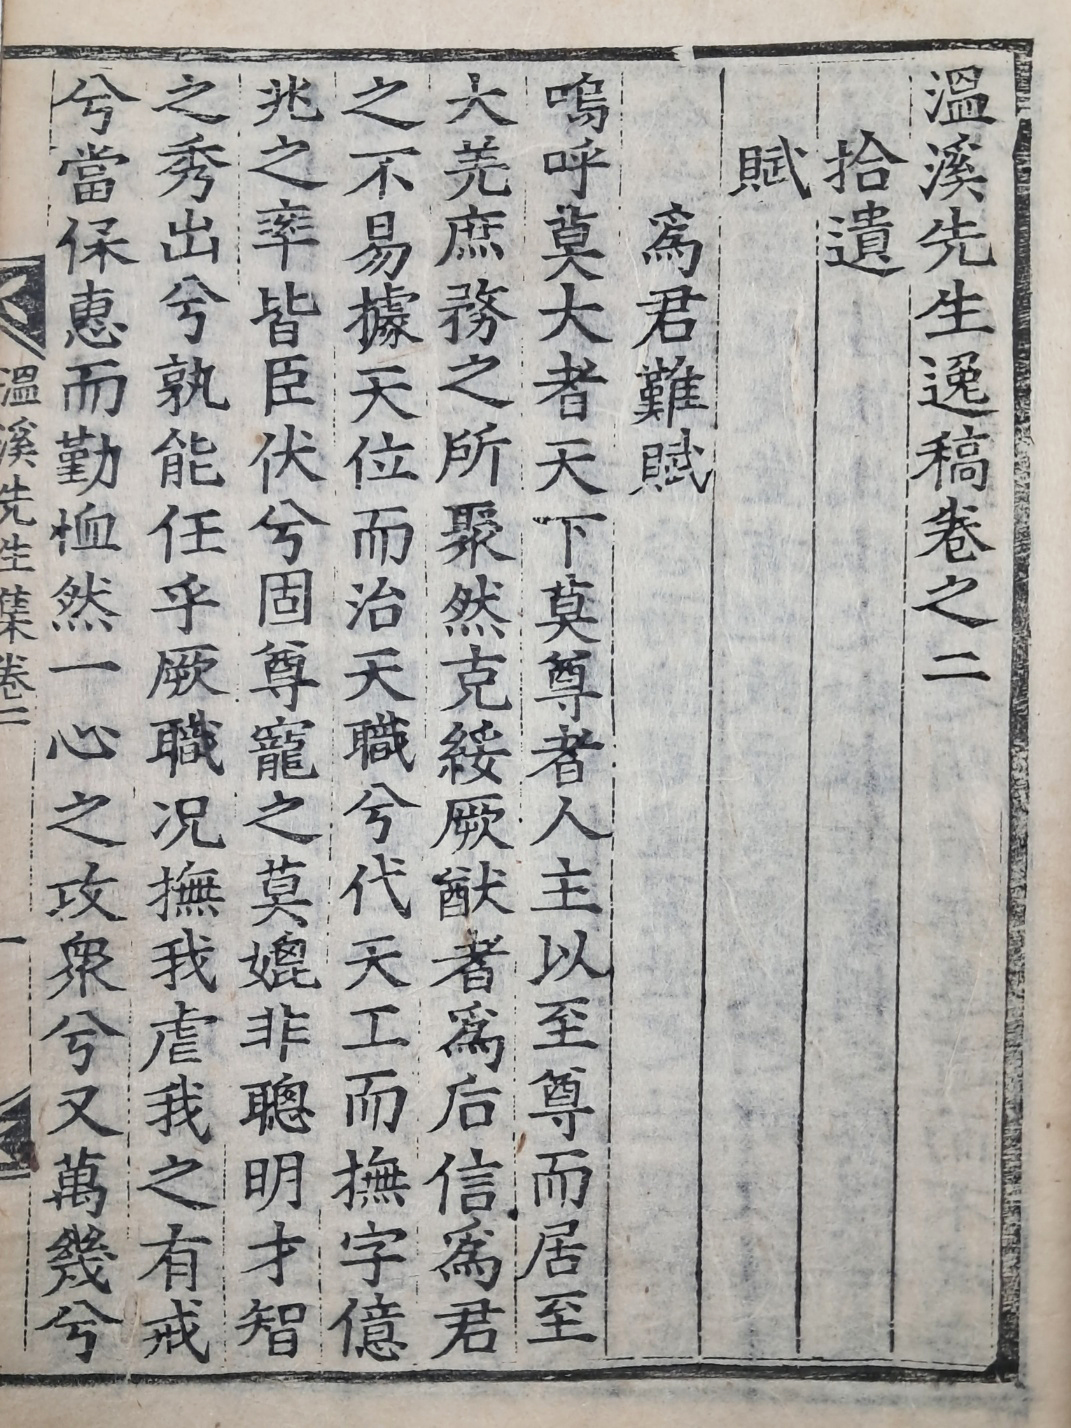 溫溪先生逸稿卷之二
拾遺
賦
爲君難賦
嗚呼莫大者天下莫尊者人主以至尊而居至
大羌庶務之所聚然克綏厥猷者爲后信爲君
之不易據天位而治天職兮代天工而撫字億
兆之率皆臣伏兮固尊寵之莫媲非聰明才智
之秀出兮孰能任乎厥職况撫我虐我之有戒
兮當保惠而勤恤然一心之攻衆兮又萬幾兮
溫溪先生集卷二
一